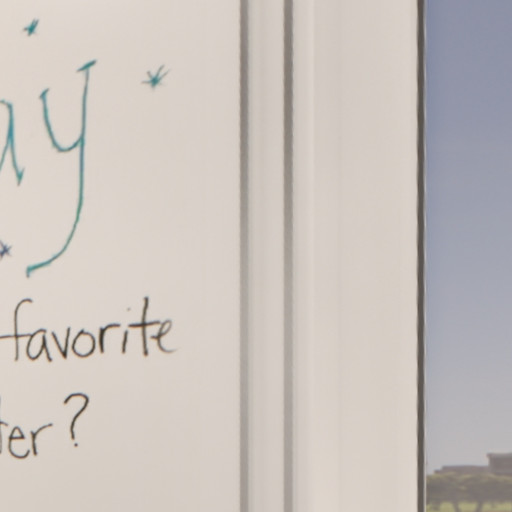 ay
favorite
ter?